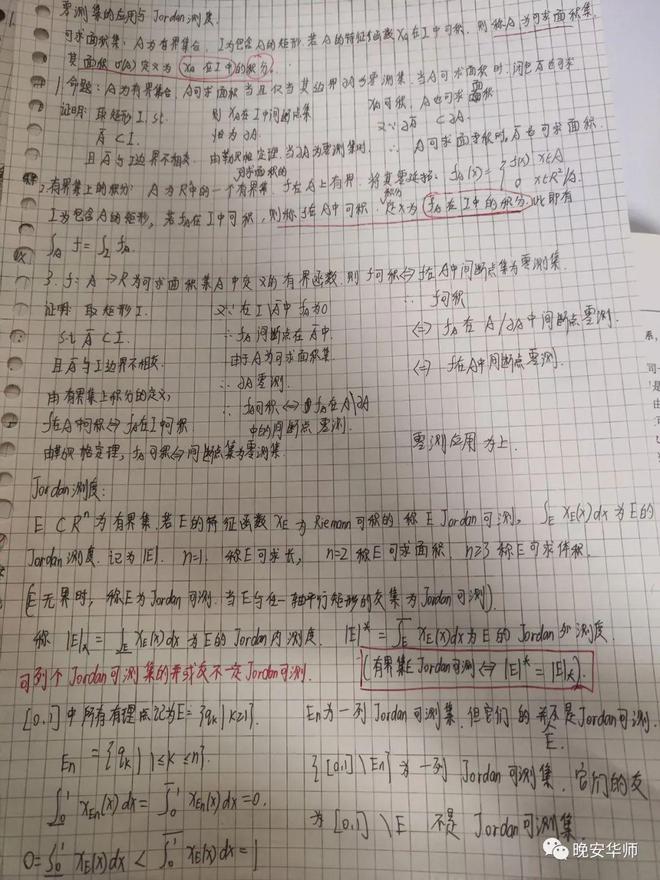 1. 零测集的应用与 Jordan 测度.
可求面积集: A为有界集合, I为包含A的矩形, 若A的特征函数 χ_A 在I中可积, 则称A为可求面积集
其面积 σ(A) 定义为 χ_A 在I中的积分.
1. 命题: A为有界集合, A可求面积 当且仅当其边界∂A为零测集. 当A可求面积时, 闭包Ā也可求面积
证明: 取矩形 I, s.t. 则 χ_A 在I中间断点集 χ_A可积, A也可求面积
Ā ⊂ I. 恰为∂A. 又∵ ∂Ā ⊂ ∂A
且Ā与I边界不相交. 由勒贝格定理, 当∂A为零测集时, ∴ A可求面积时, Ā也可求面积.
2. 有界集上的积分: A为R²中的一个有界集, f在A上有界, 将其零延拓: f_A(x) = { f(x) x∈A
0 x∈R²/A.
I为包含A的矩形, 若f_A在I中可积, 则称f在A中可积. 积分定义为 f_A在I中的积分. 此即有
∫_A f = ∫_I f_A.
3. f: A → R为可求面积集A中定义的有界函数, 则 f可积⇔f在A中间断点集为零测集.
证明: 取矩形I. 又∵ 在 I\Ā中 f_A为0 ∴ f可积
s.t Ā ⊂ I. ∴ f_A间断点在Ā中. ⇔ f_A在A/∂A中间断点零测.
且Ā与I边界不相交. 由于A为可求面积集. ⇔ f在A中间断点零测.
由有界集上积分的定义, ∴ ∂A零测.
f在A中可积⇔f_A在I中可积. ∴ f_A可积⇔f_A在A\∂A
中的间断点零测.
由勒贝格定理, f_A可积⇔间断点集为零测集. 零测应用为上.
Jordan测度:
E ⊂ Rⁿ为有界集, 若E的特征函数 χ_E 为 Riemann可积的 称E Jordan可测, ∫_E χ_E(x)dx 为E的
Jordan测度. 记为|E|. n=1. 称E可求长, n=2 称E可求面积, n≥3 称E可求体积.
(E无界时, 称E为Jordan可测. 当E与任一轴平行矩形的交集为Jordan可测).
称 |E|_* = ∫_E χ_E(x)dx 为E的Jordan内测度. |E|^* = ∫_E χ_E(x)dx为E的Jordan外测度.
可列个Jordan可测集的并或交不一定Jordan可测. (有界集E Jordan可测⇔|E|^* = |E|_*).
[0,1]中所有有理点记为E={q_k | k≥1}. E_n为一列Jordan可测集, 但它们的并E不是Jordan可测.
E_n = {q_k | 1≤k≤n}. {[0,1]\E_n} 为一列 Jordan可测集, 它们的交
∫_0^1 χ_{E_n}(x)dx = ∫_0^1 χ_{E_n}(x)dx = 0. 为 [0,1]\E 不是 Jordan可测集.
0 = ∫_0^1 χ_E(x)dx < ∫_0^1 χ_E(x)dx = 1
晚安华师